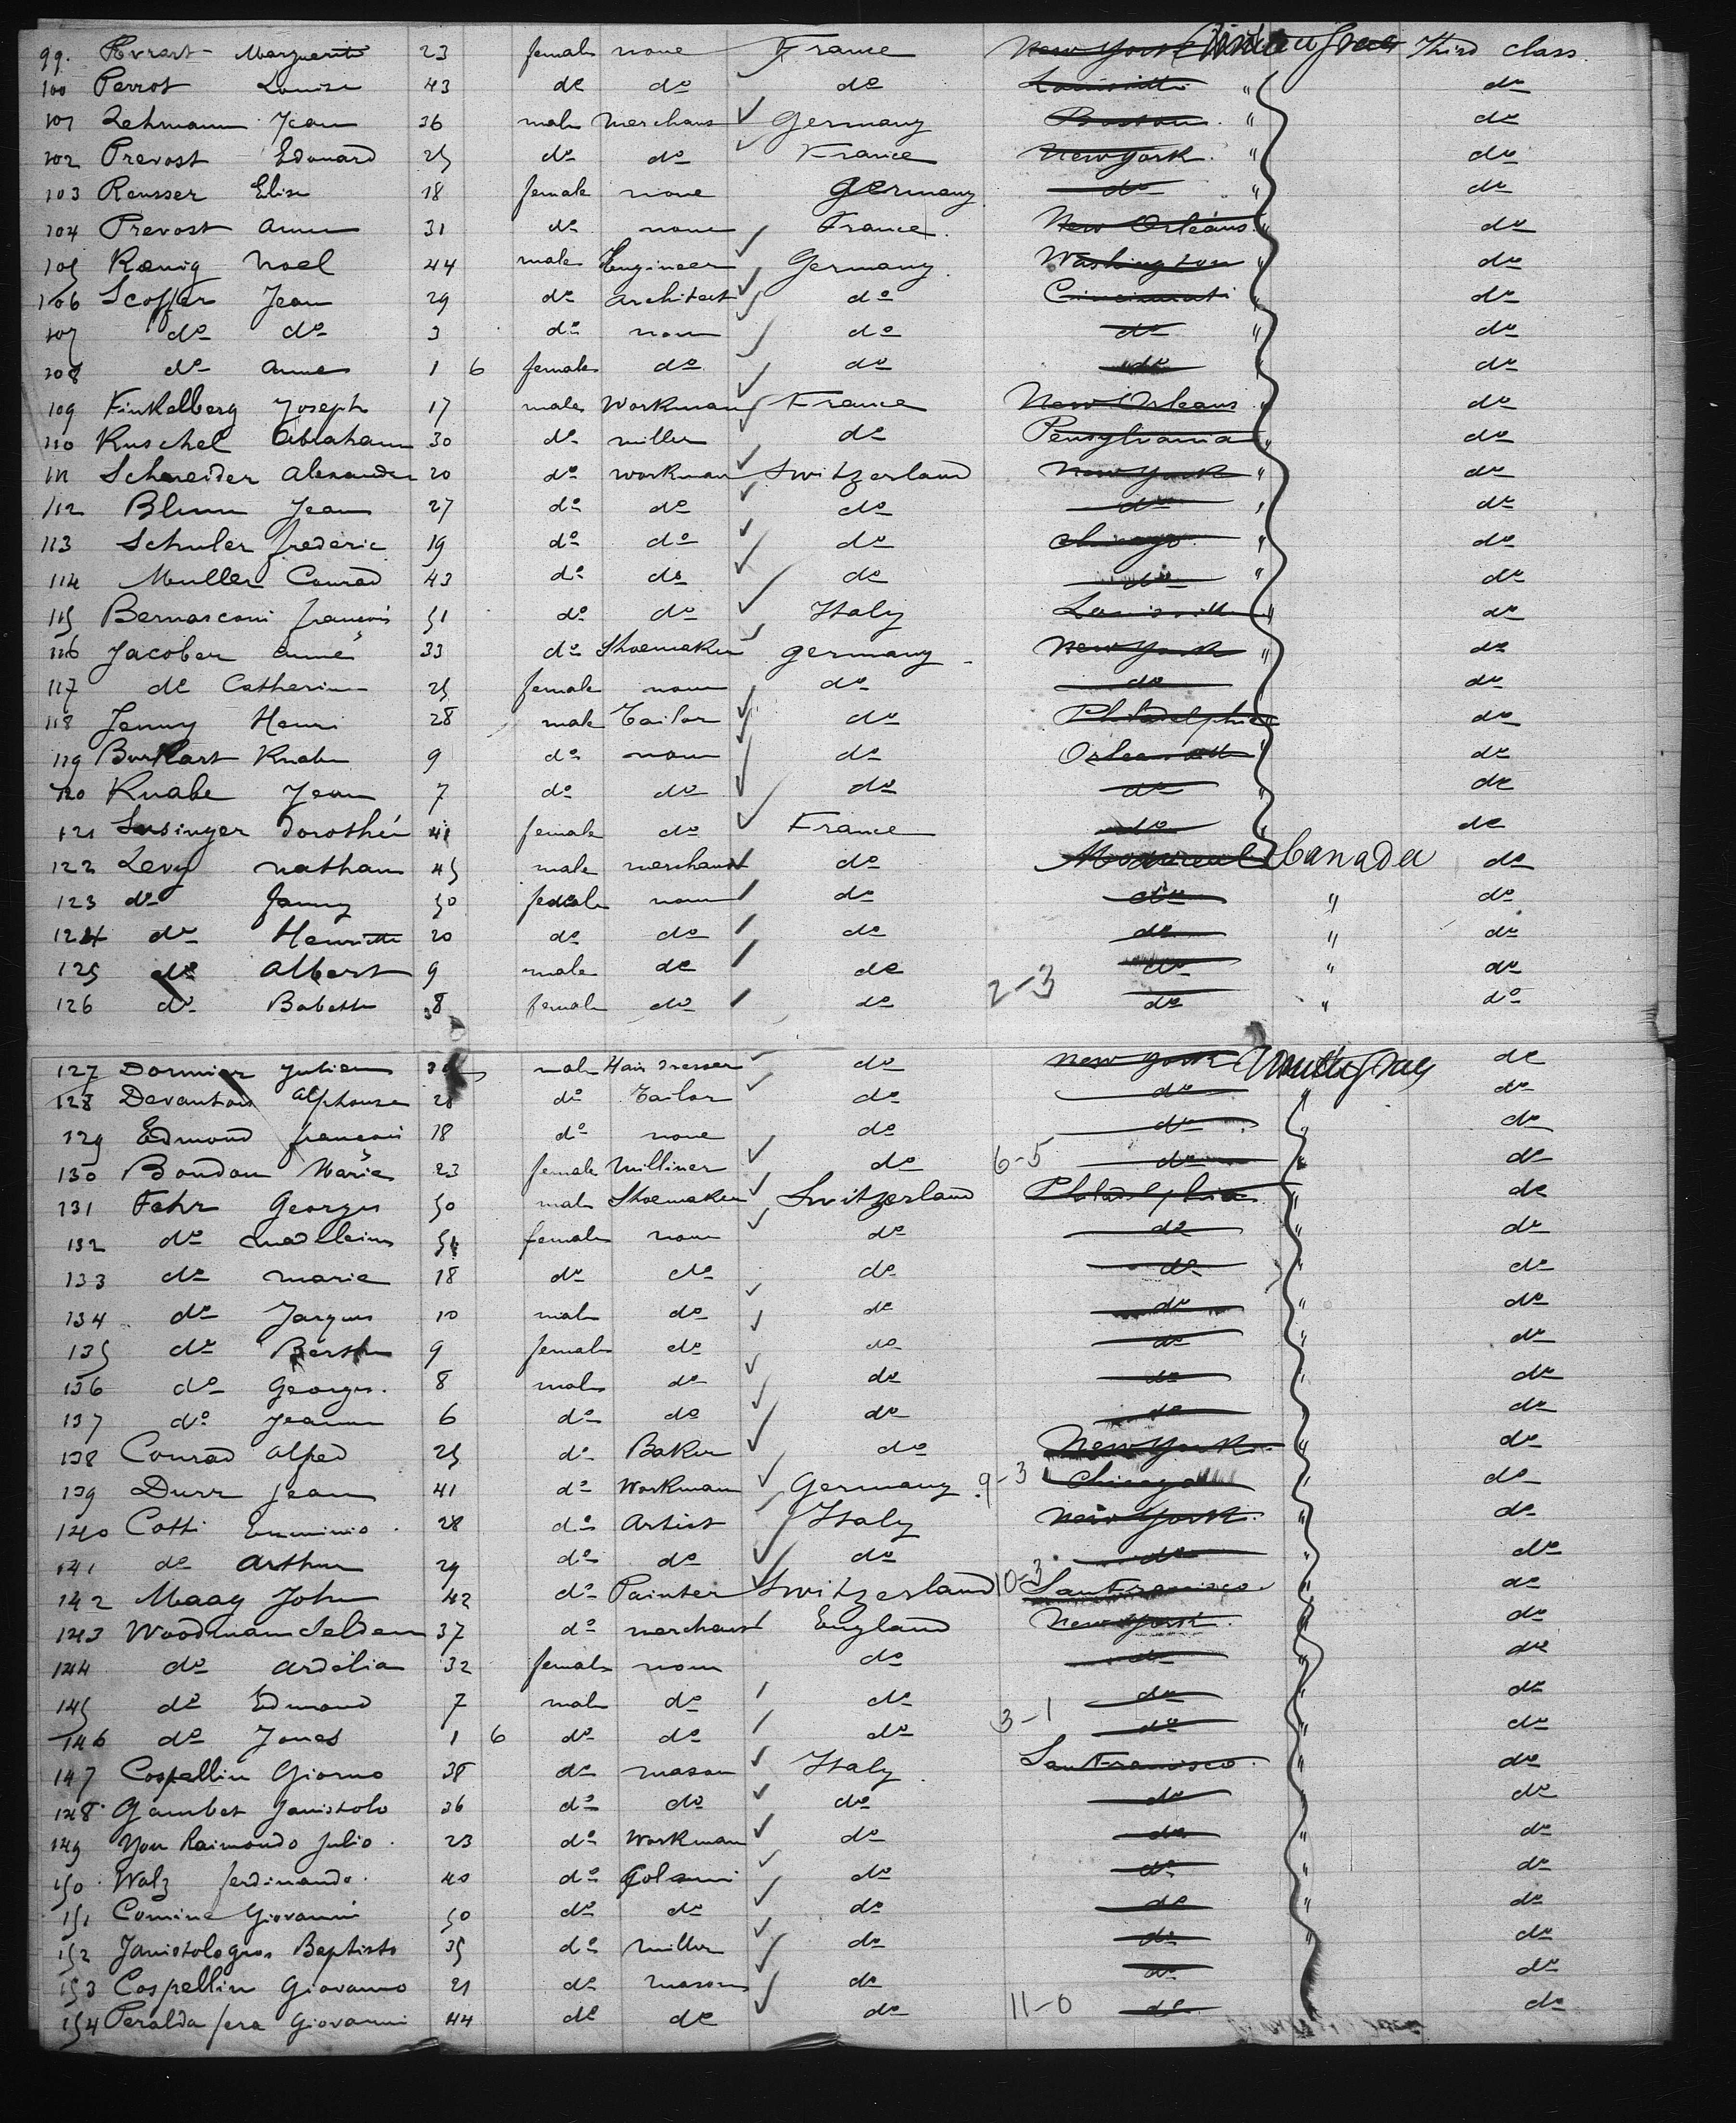 99. Marguerite 23 female none France New York United States Third class.
100 Perrot Louise 43 do do do Louisville " do
101 Lehmann Jean 36 male merchant ✓ Germany Boston. " do
102 Prevost Edouard 25 do do ✓ France New york. " do
103 Reusser Elise 18 female none Germany do " do
104 Prevost Anna 31 do none France. New Orleans. " do
105 Kœnig Noel 44 male Engineer ✓ Germany. Washington " do
106 Scoffer Jean 29 do architect ✓ do Cincinnati " do
107 do do 3 do none do do " do
108 do Anna 1 6 female do do do do
109 Finkelberg Joseph 17 male Workman ✓ France New Orleans " do
110 Kuschel Abraham 30 do miller do Pensylvania " do
111 Schneider Alexander 20 do workman ✓ Switzerland New York " do
112 Blum Jean 27 do do ✓ do do " do
113 Schuler frederic 19 do do ✓ do Chicago. " do
114 Muller Conrad 43 do do ✓ do do " do
115 Bernasconi françois 51 do do ✓ Italy Louisville " do
116 Jacober 33 do Shoemaker ✓ Germany New York " do
117 do Catherine 25 female none do do do
118 Jenny Henri 28 male Tailor ✓ do Philadelphia do
119 Burkart Knabe 9 do none do " do
120 Knabe Jean 7 do do ✓ do do " do
121 Dorothée 41 female do ✓ France do " do
122 Levy nathan 45 male merchant ✓ do Montreal Canada do
123 do fanny 50 female none do do " do
124 do Henriette 20 do do do do " do
125 do Albert 9 male do do do " do
126 do Babette 8 female do do 2-3 do " do
127 Dormier Julien male Hair dresser ✓ do New York United States do
128 Alphonse 28 do Tailor ✓ do do " do
129 Edmond françois 18 do none do do " do
130 Boudou Marie 23 female milliner ✓ do 6-5 do " do
131 Fehr Georges 50 male Shoemaker ✓ Switzerland Philadelphia " do
132 do Madeleine female none ✓ do do " do
133 do Marie 18 do do do do " do
134 do Jacques 10 male do ✓ do do " do
135 do Berthe 9 female do ✓ do do " do
136 do Georges. 8 male do ✓ do do " do
137 do Jeanne 6 do do ✓ do do do
138 Conrad Alfred 25 do Baker ✓ do New York " do
139 Durr Jean 41 do Workman ✓ Germany 9-3 Chicago " do
140 Cotti Erminio. 28 do Artist Italy New York. " do
141 do Arthur 29 do do ✓ do do " do
142 Maag John 42 do Painter ✓ Switzerland 10-3 San Francisco. " do
143 Woodman Selden 37 do merchant England New York. " do
144 do Ardelia 32 female none do do " do
145 do Edmond 7 male do do do " do
146 do Jones 1 6 do do do 3-1 do " do
147 Cospellin Giorno 38 do mason ✓ Italy San Francisco. " do
148 Gambet 36 do do ✓ do do " do
149 Raimondo Julio. 23 do Workman ✓ do do " do
150 Walz ferdinando. 40 do ✓ do do " do
151 Comina Giovanni 50 do do ✓ do do " do
152 Baptista 35 do miller ✓ do do " do
153 Cospellin Giovanno 21 do mason ✓ do do do
154 Peralda Giovanni 44 do do ✓ do 11-0 do do